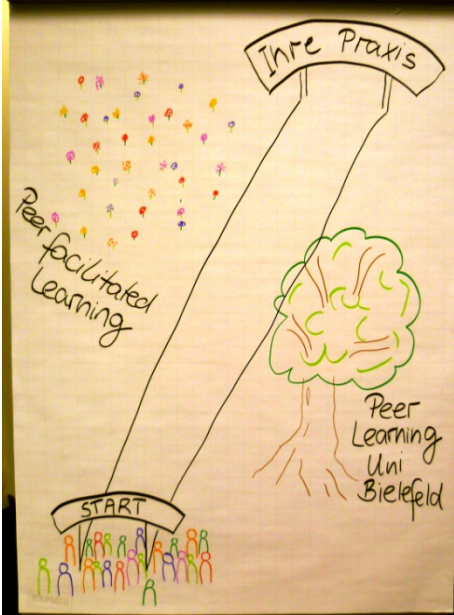 Ihre Praxis
Peer facilitated
Learning
Peer
Learning
Uni
Bielefeld
START